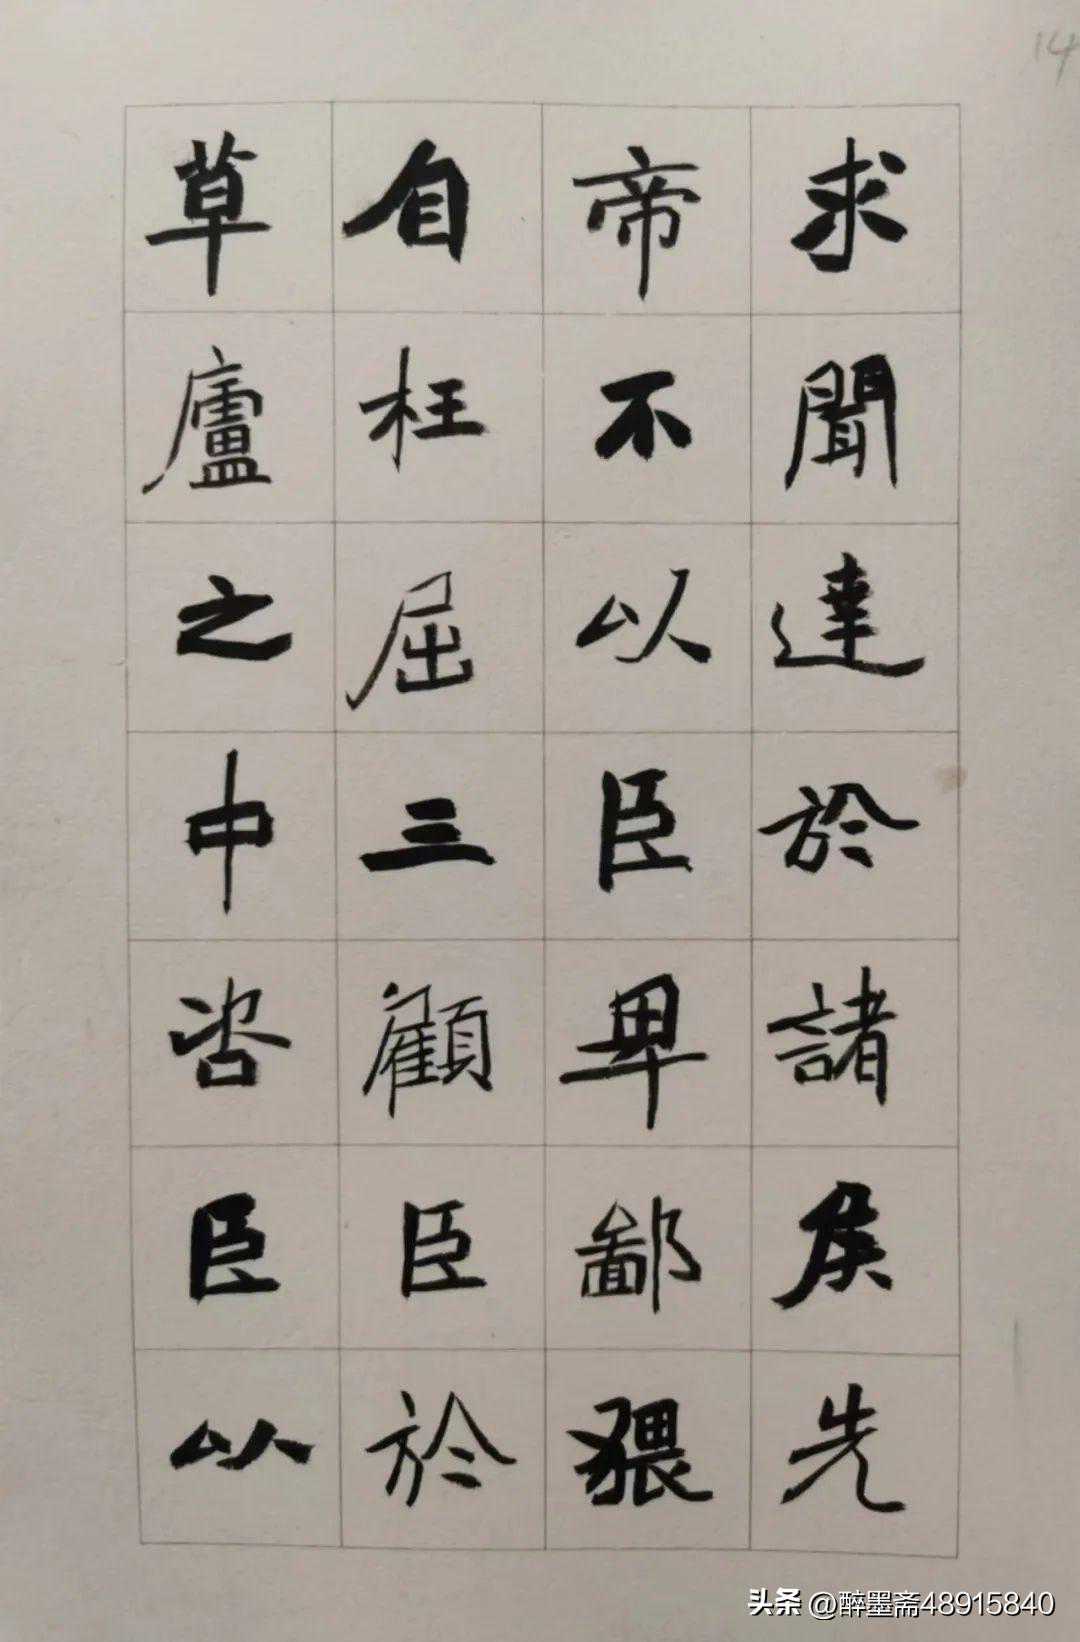 14
求聞達於諸侯先
帝不以臣卑鄙猥
自枉屈三顧臣於
草廬之中咨臣以
头条 @醉墨斋48915840